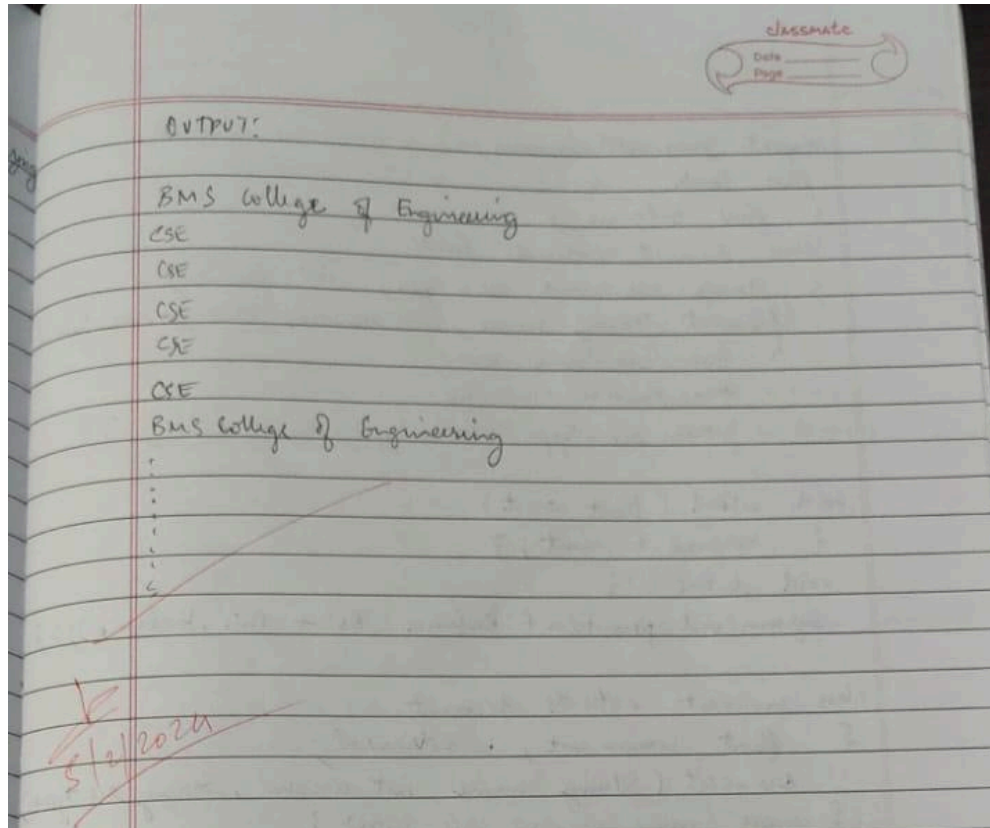 classmate
Date
Page
OUTPUT:
BMS College of Engineering
CSE
CSE
CSE
CSE
CSE
BMS College of Engineering
5/2/2024